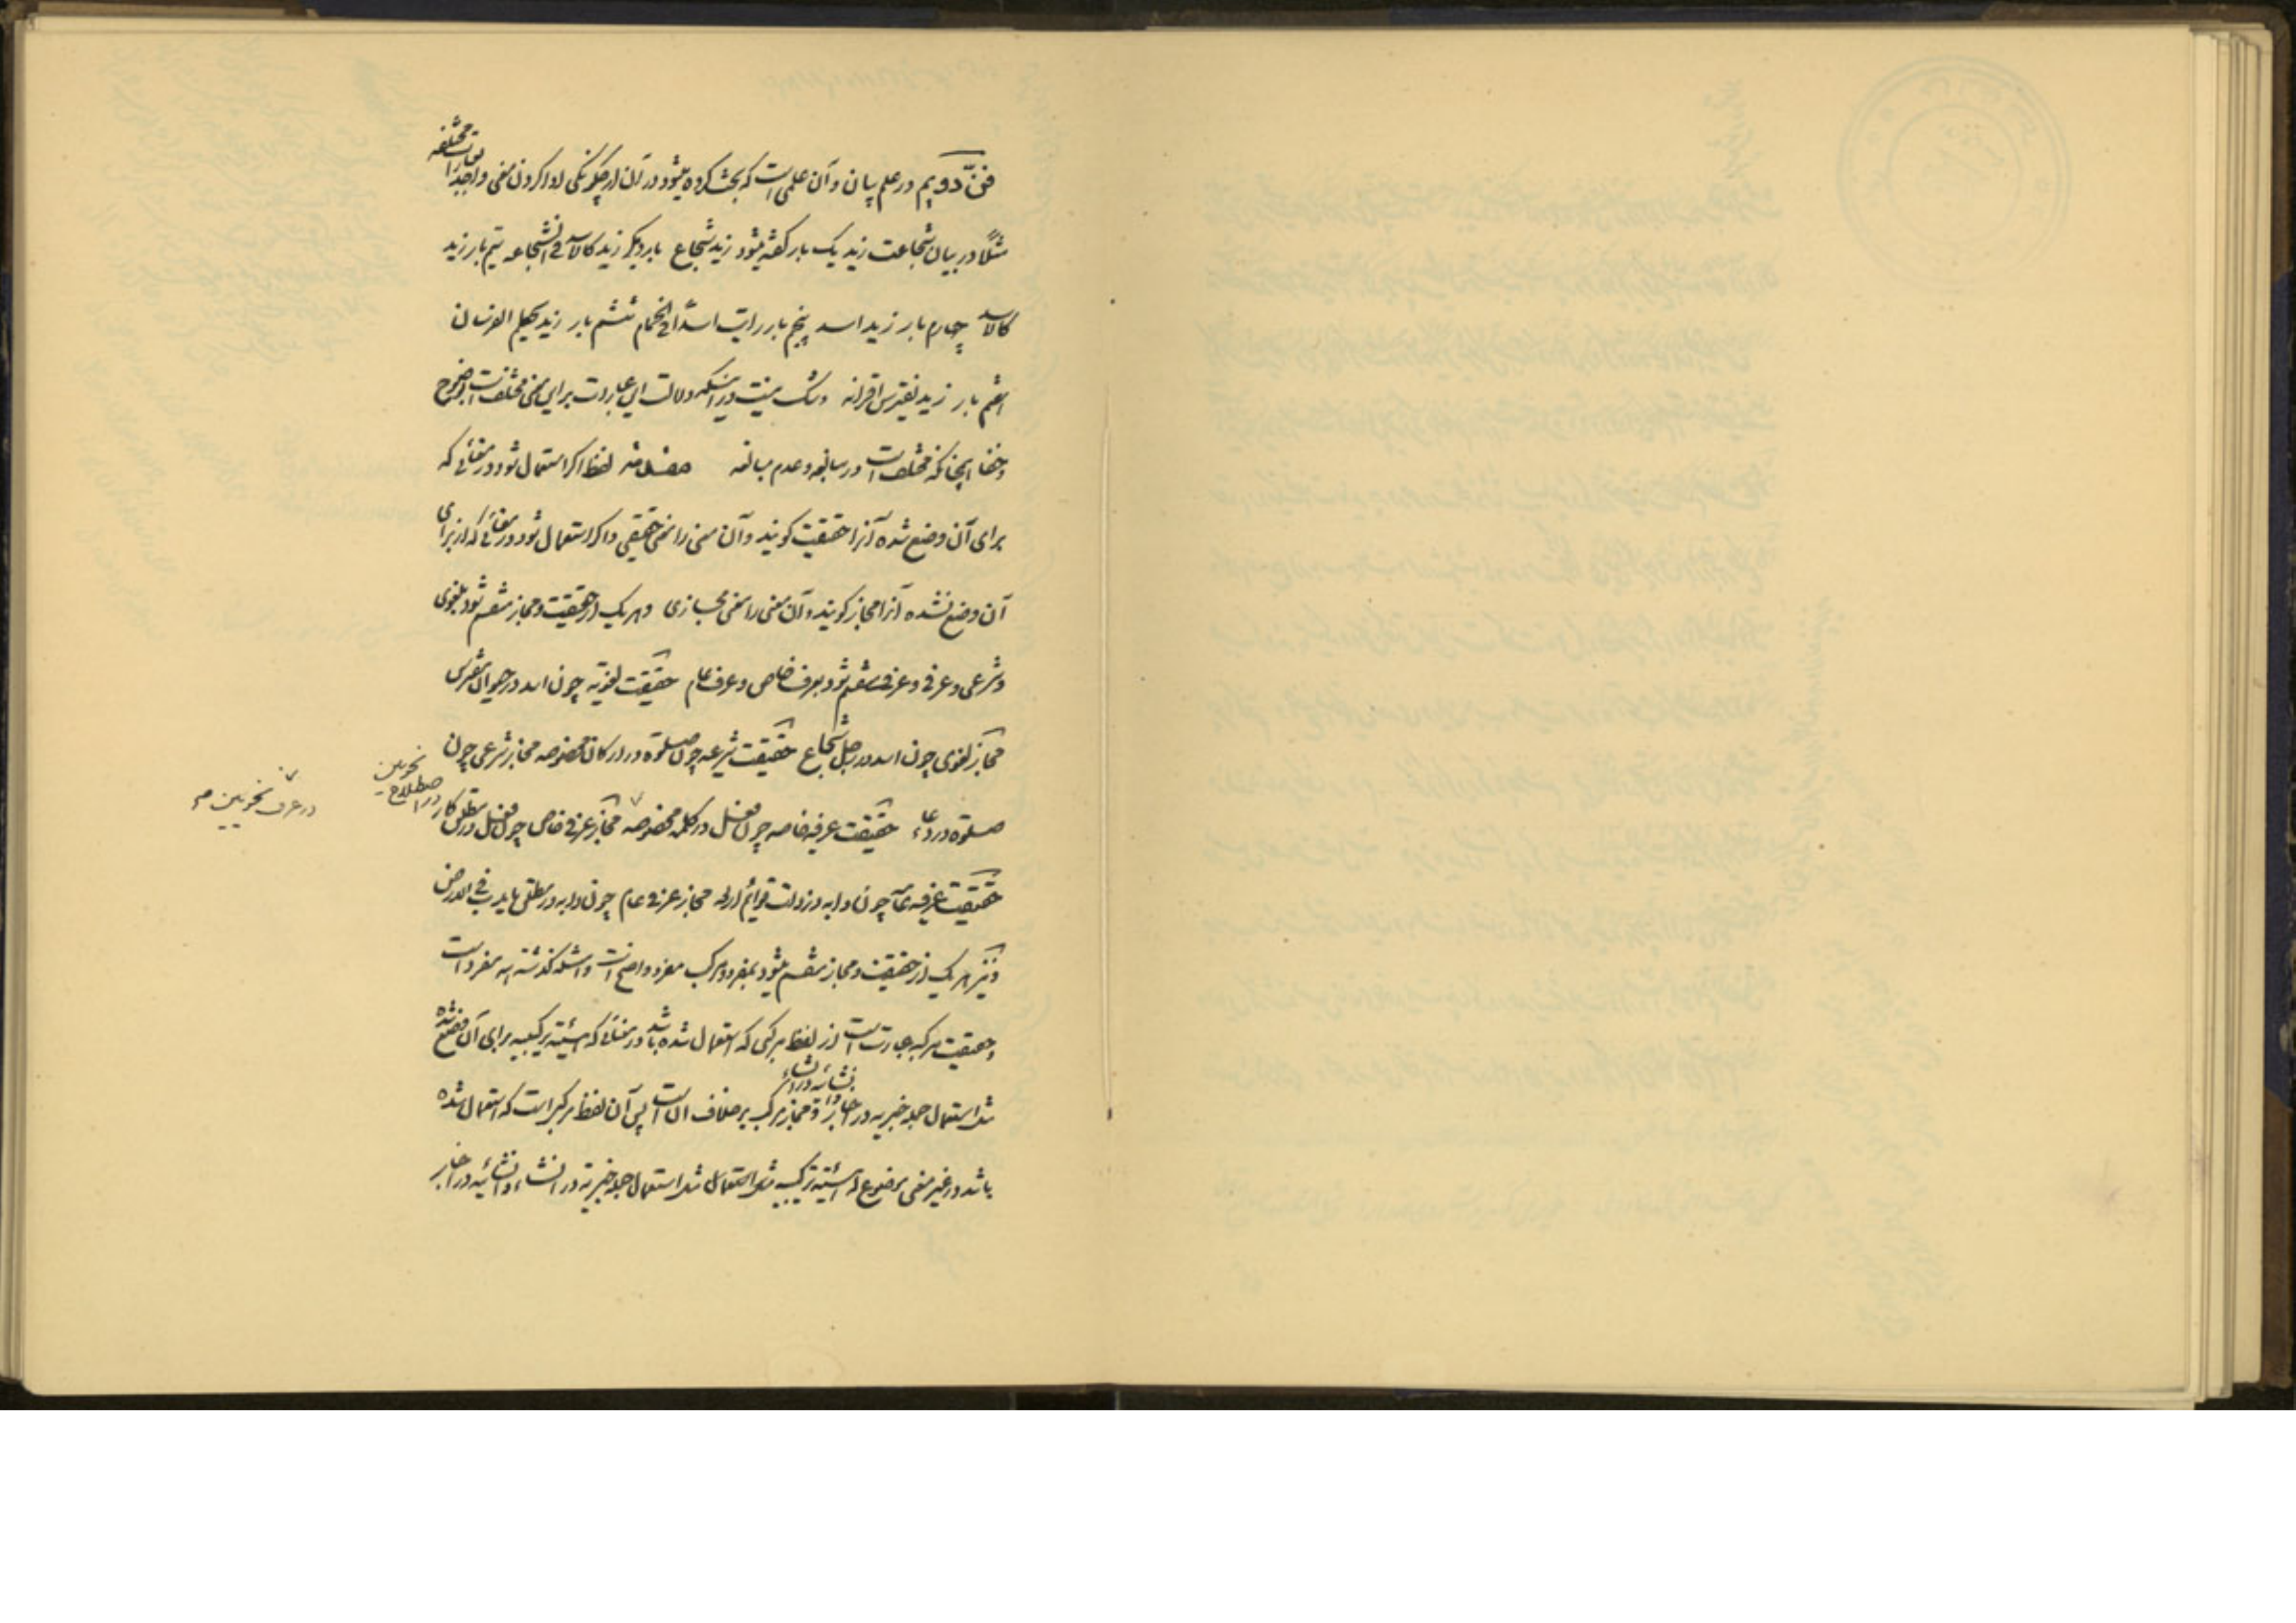 فنّ دویم در علم بیان و آن علمی است که بحث کرده میشود در آن از چگونگی ادا کردن معنی واحد را بعبارات مختلفه
مثلًا در بیان شجاعت زید یک بار گفته میشود زید شجاع بار دیگر زید کالاسد فی الشجاعه سیم بار زید
کالاسد چهارم بار زید اسد پنجم بار رایت اسدًا فی الحمام ششم بار زید یکلم الفرسان
هفتم بار زید یفترس اقرانه و شک نیست در اینکه دلالت این عبارات برای معنی مختلف است در وضوح
و خفا همچنانکه مختلف است در مبالغه و عدم مبالغه مقدمة لفظ اگر استعمال شود در معنائی که
برای آن وضع شده آنرا حقیقت گویند و آن معنی را معنی حقیقی و اگر استعمال شود در معنائی که از برای
آن وضع نشده آنرا مجاز گویند و آن معنی را معنی مجازی و هر یک از حقیقت و مجاز منقسم شود بلغوی
و شرعی و عرفی و عرفی منقسم شود بعرف خاص و عرف عام حقیقت لغویه چون اسد در حیوان مفترس
مجاز لغوی چون اسد در رجل شجاع حقیقت شرعیه چون صلوة در ارکان مخصوصه مجاز شرعی چون
صلوة در دعاء حقیقت عرفیه خاصه چون فعل در کلمه مخصوصه مجاز عرفی خاص چون فعل در مطلق کار در اصطلاح نحویین
در عرف نحویین صح
حقیقت عرفیه عامه چون دابه در ذوات قوائم اربع مجاز عرفی عام چون دابه در مطلق ما یدب فی الارض
و نیز هر یک از حقیقت و مجاز منقسم میشود بمفرد و مرکب مفرد واضح است و امثله گذشته همه مفرد است
و حقیقت مرکبه عبارت است از لفظ مرکبی که استعمال شده باشد در معنائی که هیئته ترکیبیه برای آن وضع شده
مثل استعمال جمله خبریه در اخبار و انشائیه در انشاء و مجاز مرکب بر خلاف آن است پس آن لفظ مرکبی است که استعمال شده
باشد در غیر معنی موضوع له هیئته ترکیبیه مثل استعمال جمله خبریه در انشاء و انشائیه در اخبار